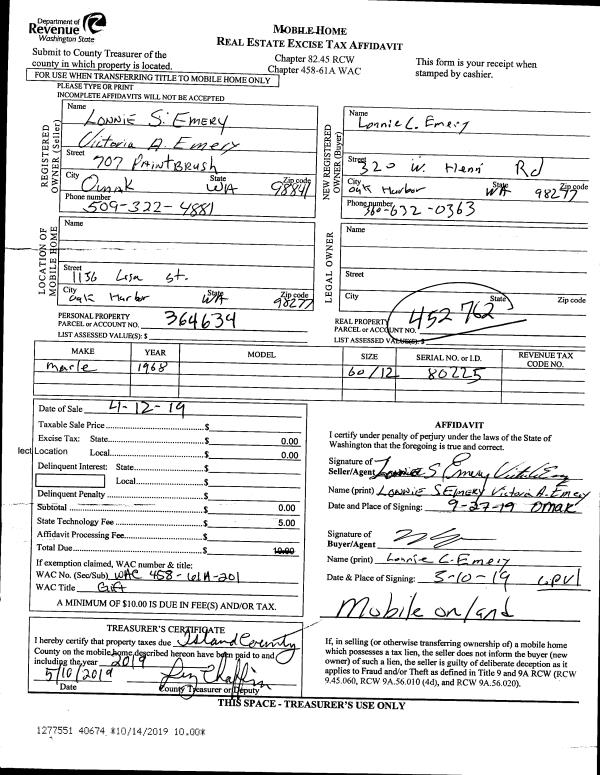 Department of
Revenue
Washington State
MOBILE HOME
REAL ESTATE EXCISE TAX AFFIDAVIT
Submit to County Treasurer of the
county in which property is located.
Chapter 82.45 RCW
Chapter 458-61A WAC
This form is your receipt when
stamped by cashier.
FOR USE WHEN TRANSFERRING TITLE TO MOBILE HOME ONLY
PLEASE TYPE OR PRINT
INCOMPLETE AFFIDAVITS WILL NOT BE ACCEPTED
REGISTERED
OWNER (Seller)
Name
LONNIE S. EMERY
Victoria A. Emery
Street
707 PAINTBRUSH
City State Zip code
Omak WA 98841
Phone number
509-322-4881
NEW REGISTERED
OWNER (Buyer)
Name
Lonnie L. Emery
Street
320 W. Henni Rd
City State Zip code
Oak Harbor WA 98277
Phone number
360-632-0363
LOCATION OF
MOBILE HOME
Name
Street
1156 Lisa St.
City State Zip code
Oak Harbor WA 98277
LEGAL OWNER
Name
Street
City State Zip code
PERSONAL PROPERTY
PARCEL or ACCOUNT NO. 364634
LIST ASSESSED VALUE(S): $
REAL PROPERTY
PARCEL or ACCOUNT NO. 452762
LIST ASSESSED VALUE(S): $
MAKE YEAR MODEL SIZE SERIAL NO. or I.D. REVENUE TAX
CODE NO.
Marle 1968 60/12 80225
Date of Sale 4-12-19
Taxable Sale Price $
Excise Tax: State $ 0.00
lect Location Local $ 0.00
Delinquent Interest: State $
Local $
Delinquent Penalty $
Subtotal $ 0.00
State Technology Fee $ 5.00
Affidavit Processing Fee $
Total Due $ 10.00
If exemption claimed, WAC number & title:
WAC No. (Sec/Sub) WAC 458-61A-201
WAC Title Gift
A MINIMUM OF $10.00 IS DUE IN FEE(S) AND/OR TAX.
AFFIDAVIT
I certify under penalty of perjury under the laws of the State of
Washington that the foregoing is true and correct.
Signature of
Seller/Agent Lonnie S Emery
Name (print) LONNIE S EMERY Victoria A. Emery
Date and Place of Signing: 9-27-19 OMAK
Signature of
Buyer/Agent
Name (print) Lonnie L. Emery
Date & Place of Signing: 5-10-19
Mobile on land
TREASURER'S CERTIFICATE
I hereby certify that property taxes due Island County
County on the mobile home described hereon have been paid to and
including the year 2019
5/10/2019
Date County Treasurer or Deputy
If, in selling (or otherwise transferring ownership of) a mobile home
which possesses a tax lien, the seller does not inform the buyer (new
owner) of such a lien, the seller is guilty of deliberate deception as it
applies to Fraud and/or Theft as defined in Title 9 and 9A RCW (RCW
9.45.060, RCW 9A.56.010 (4d), and RCW 9A.56.020).
THIS SPACE - TREASURER'S USE ONLY
1277551 40674 *10/14/2019 10.00*